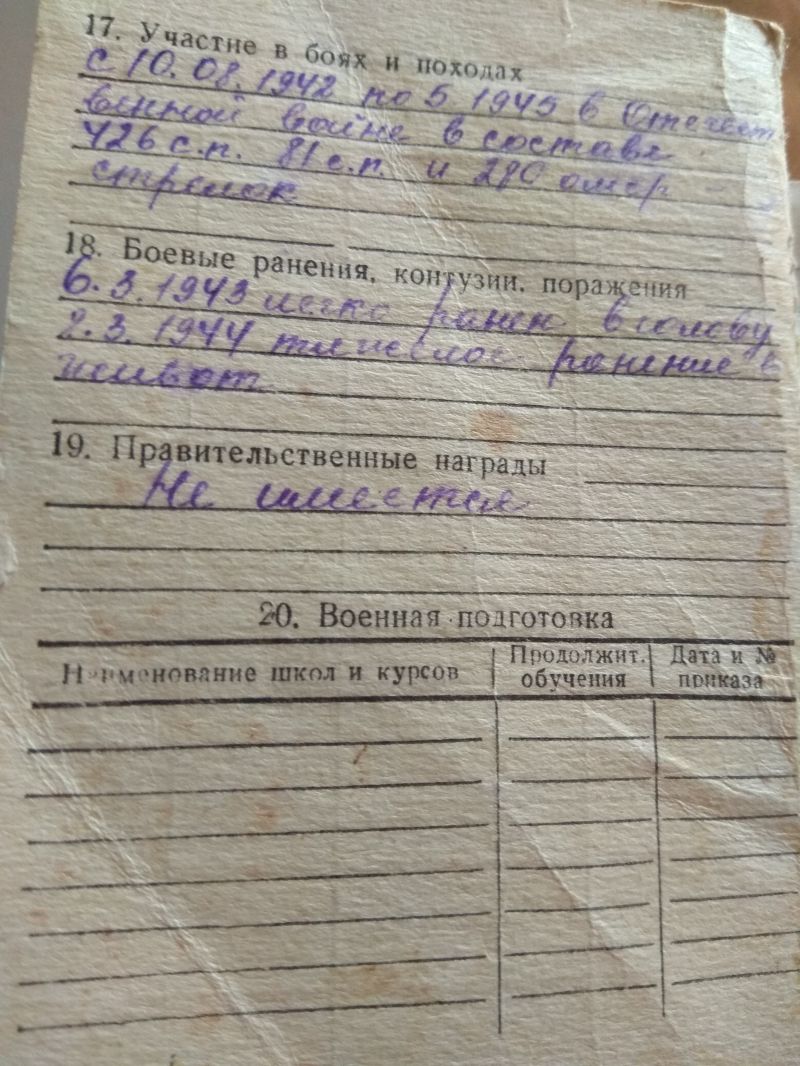 17. Участие в боях и походах
с 10.08.1942 по 5 1945 в Отечест
венной войне в составе
426 с.п. 81 с.п. и 280
стрелок
18. Боевые ранения, контузии, поражения
6.3.1943 легко ранен в голову
2.3.1944 тяжелое ранение в
живот
19. Правительственные награды
Не имеется
20. Военная подготовка
Наименование школ и курсов
Продолжит. обучения
Дата и № приказа